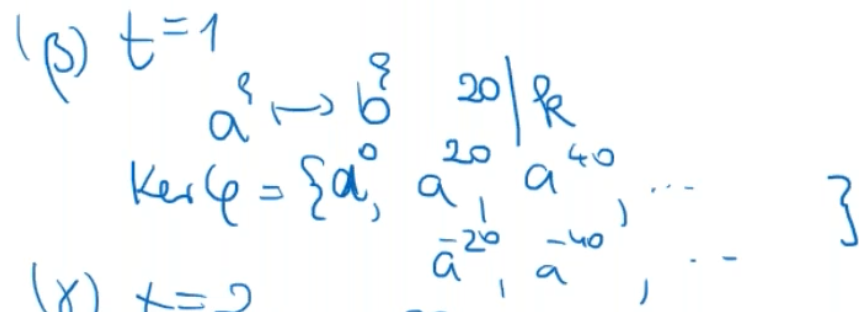 (β) t=1
a^k ↦ b^k 20|k
Ker φ = {a^0, a^20, a^40, ...
a^-20, a^-40, ... }
(γ) t=2